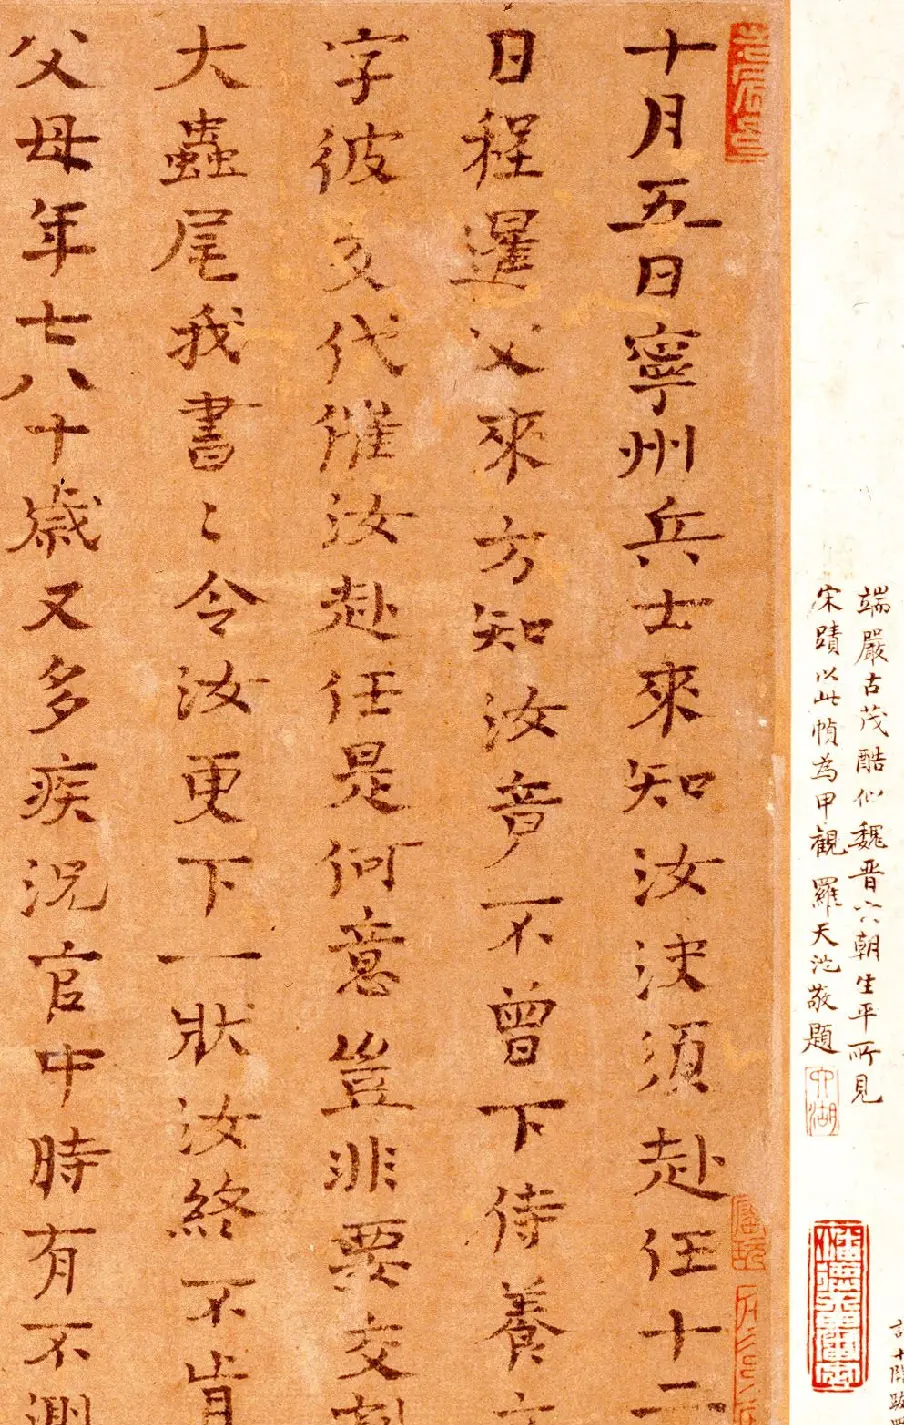 端嚴古茂酷似魏晋六朝生平所見
宋蹟以此幀為甲觀羅天池敬題
六湖
十月五日寧州兵士來知汝決須赴任十二
日程暹父來方知汝音不曾下侍養
字彼交代催汝赴任是何意豈非要交割
大蟲尾我書〻令汝更下一狀汝終不肯
父母年七八十歲又多疾況官中時有不測